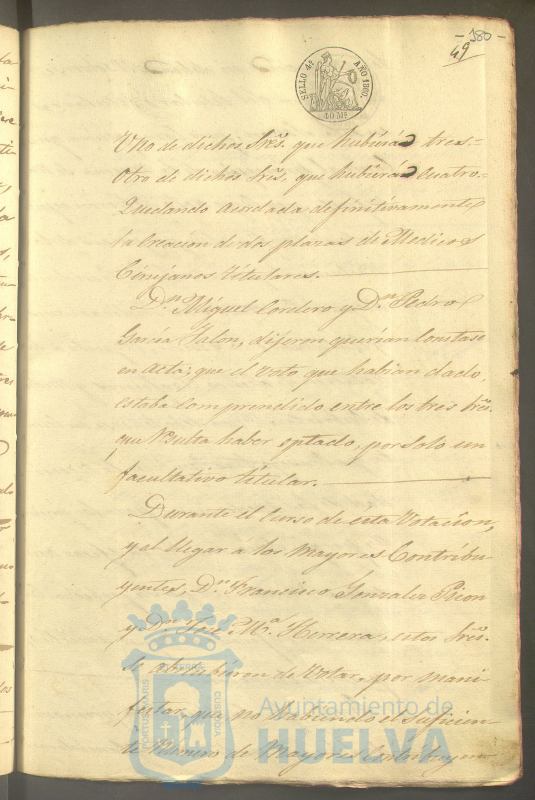 - 180 -
49
SELLO 4º AÑO 1860.
40 Mˢ
Uno de dichos Srēs. que hubiera tres.=
Otro de dichos Srēs. que hubiera cuatro.=
Quedando acordada definitivamente
la creacion de dos plazas de Medicos
Cirujanos titulares.
Dⁿ. Miguel Cordero y Dⁿ. Pedro
Garcia Jalon, dijeron querian constase
en acta; que el voto que habian dado,
estaba comprendido entre los tres Srēs.
que resulta haber optado, por solo un
facultativo titular.
Durante el curso de esta votacion,
y al llegar a los mayores Contribu
yentes, Dⁿ. Francisco Gonzalez
y Dⁿ José Mª. Herrera, estos Srēs.
se abstubieron de votar, por mani
festar, que no habiendo el suficien
te número de mayores contribuyen
PORTUS MARIS
TERRE
CUSTODIA
Ayuntamiento de
HUELVA